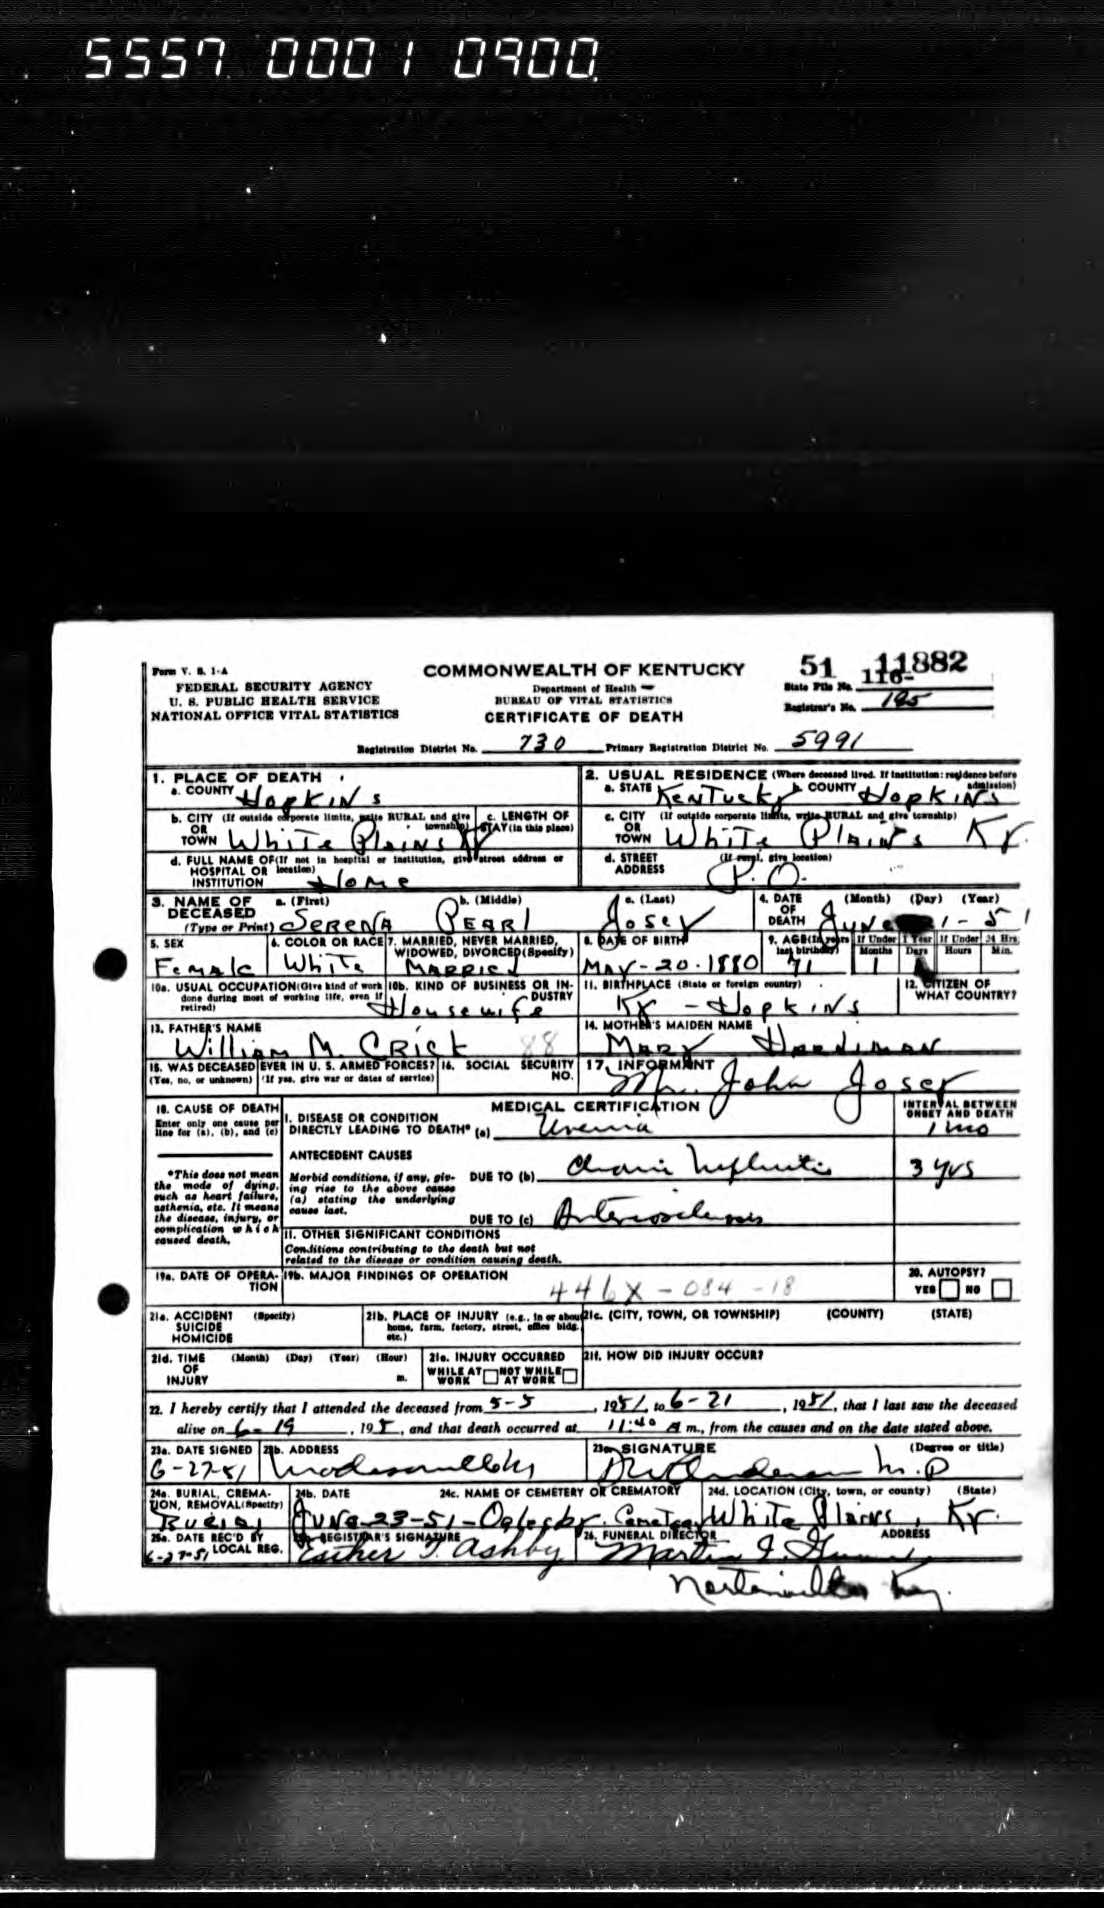 5557 0001 0900
Form V. S. 1-A
FEDERAL SECURITY AGENCY
U. S. PUBLIC HEALTH SERVICE
NATIONAL OFFICE VITAL STATISTICS
COMMONWEALTH OF KENTUCKY
Department of Health
BUREAU OF VITAL STATISTICS
CERTIFICATE OF DEATH
51 11882
State File No. 116-
Registrar's No. 195
Registration District No. 730 Primary Registration District No. 5991
1. PLACE OF DEATH
a. COUNTY Hopkins
2. USUAL RESIDENCE (Where deceased lived. If institution: residence before admission)
a. STATE Kentucky b. COUNTY Hopkins
b. CITY (If outside corporate limits, write RURAL and give township)
OR
TOWN White Plains Ky
c. LENGTH OF STAY (in this place)
c. CITY (If outside corporate limits, write RURAL and give township)
OR
TOWN White Plains Ky.
d. FULL NAME OF (If not in hospital or institution, give street address or location)
HOSPITAL OR
INSTITUTION Home
d. STREET (If rural, give location)
ADDRESS P.O.
3. NAME OF DECEASED (Type or Print)
a. (First) b. (Middle) c. (Last)
Serena Pearl Josey
4. DATE OF DEATH (Month) (Day) (Year)
June 1-51
5. SEX
Female
6. COLOR OR RACE
White
7. MARRIED, NEVER MARRIED, WIDOWED, DIVORCED (Specify)
Married
8. DATE OF BIRTH
May-20-1880
9. AGE (In years last birthday)
71
If Under 1 Year Months Days
1
If Under 24 Hrs. Hours Min.
10a. USUAL OCCUPATION (Give kind of work done during most of working life, even if retired)
10b. KIND OF BUSINESS OR INDUSTRY
Housewife
11. BIRTHPLACE (State or foreign country)
Ky - Hopkins
12. CITIZEN OF WHAT COUNTRY?
13. FATHER'S NAME
William M. Crick 88
14. MOTHER'S MAIDEN NAME
Mary Hardiman
15. WAS DECEASED EVER IN U. S. ARMED FORCES?
(Yes, no, or unknown) (If yes, give war or dates of service)
16. SOCIAL SECURITY NO.
17. INFORMANT
Mr. John Josey
18. CAUSE OF DEATH
Enter only one cause per line for (a), (b), and (c)
MEDICAL CERTIFICATION
INTERVAL BETWEEN ONSET AND DEATH
I. DISEASE OR CONDITION
DIRECTLY LEADING TO DEATH* (a) Uremia 1 mo
*This does not mean the mode of dying, such as heart failure, asthenia, etc. It means the disease, injury, or complication which caused death.
ANTECEDENT CAUSES
Morbid conditions, if any, giving rise to the above cause (a) stating the underlying cause last.
DUE TO (b) Chronic Nephritis 3 yrs
DUE TO (c) Arteriosclerosis
II. OTHER SIGNIFICANT CONDITIONS
Conditions contributing to the death but not related to the disease or condition causing death.
19a. DATE OF OPERATION
19b. MAJOR FINDINGS OF OPERATION
446X-084-18
20. AUTOPSY?
YES NO
21a. ACCIDENT (Specify)
SUICIDE
HOMICIDE
21b. PLACE OF INJURY (e.g., in or about home, farm, factory, street, office bldg. etc.)
21c. (CITY, TOWN, OR TOWNSHIP) (COUNTY) (STATE)
21d. TIME (Month) (Day) (Year) (Hour)
OF
INJURY m.
21e. INJURY OCCURRED
WHILE AT WORK NOT WHILE AT WORK
21f. HOW DID INJURY OCCUR?
22. I hereby certify that I attended the deceased from 5-5, 1951, to 6-21, 1951, that I last saw the deceased
alive on 6-19, 195, and that death occurred at 11:40 A m., from the causes and on the date stated above.
23a. DATE SIGNED
6-27-51
23b. ADDRESS
23c. SIGNATURE (Degree or title)
M.D
24a. BURIAL, CREMATION, REMOVAL (Specify)
Burial
24b. DATE
June-23-51
24c. NAME OF CEMETERY OR CREMATORY
Oglesby Cemetery
24d. LOCATION (City, town, or county) (State)
White Plains, Ky.
25a. DATE REC'D BY LOCAL REG.
6-27-51
REGISTRAR'S SIGNATURE
Esther T. Ashby
26. FUNERAL DIRECTOR ADDRESS
Martin
Nortonville Ky.